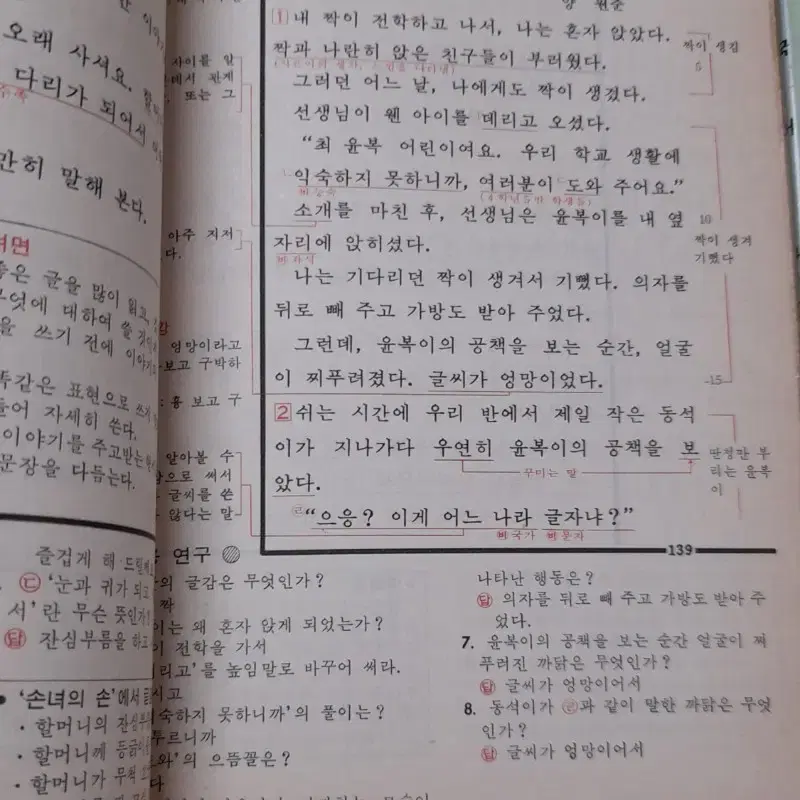 만 이
오래 사셔요.
다리가 되어서
만히 말해 본다.
려면
좋은 글을 많이 읽고,
무엇에 대하여 쓸
을 쓰기 전에 이야기
똑같은 표현으로 쓰
들어 자세히 쓴다.
이야기를 주고받는
문장을 다듬는다.
즐겁게 해 드릴게
㉢ '눈과 귀가 되고
서'란 무슨 뜻인가
답 잔심부름을 하고
• '손녀의 손'에서
· 할머니의 잔심부
· 할머니께 등긁이
· 할머니가 무척
사이를 알
에서 관계
또는 그
아주 지저
다.
감
엉망이라고
보고 구박하
: 흉 보고 구
알아볼 수
함으로 써서
글씨를 쓴
않다는 말
양 원준
1 내 짝이 전학하고 나서, 나는 혼자 앉았다.
짝과 나란히 앉은 친구들이 부러웠다.
그러던 어느 날, 나에게도 짝이 생겼다.
선생님이 웬 아이를 데리고 오셨다.
"최 윤복 어린이여요. 우리 학교 생활에
익숙하지 못하니까, 여러분이 도와 주어요."
비능숙
소개를 마친 후, 선생님은 윤복이를 내 옆
자리에 앉히셨다.
비 좌석
나는 기다리던 짝이 생겨서 기뻤다. 의자를
뒤로 빼 주고 가방도 받아 주었다.
그런데, 윤복이의 공책을 보는 순간, 얼굴
이 찌푸려졌다. 글씨가 엉망이었다.
2 쉬는 시간에 우리 반에서 제일 작은 동석
이가 지나가다 우연히 윤복이의 공책을 보
꾸미는 말
았다.
㉣ "으응? 이게 어느 나라 글자냐?"
비국가 비문자
짝이 생김
5
10
짝이 생겨
기뻤다
15
딴청만 부
리는 윤복
이
139
연구
의 글감은 무엇인가?
짝
이는 왜 혼자 앉게 되었는가?
이 전학을 가서
리고'를 높임말로 바꾸어 써라.
시고
숙하지 못하니까'의 풀이는?
투르니까
와'의 으뜸꼴은?
다
나타난 행동은?
답 의자를 뒤로 빼 주고 가방도 받아 주
었다.
7. 윤복이의 공책을 보는 순간 얼굴이 찌
푸려진 까닭은 무엇인가?
답 글씨가 엉망이어서
8. 동석이가 ㉣과 같이 말한 까닭은 무엇
인가?
답 글씨가 엉망이어서